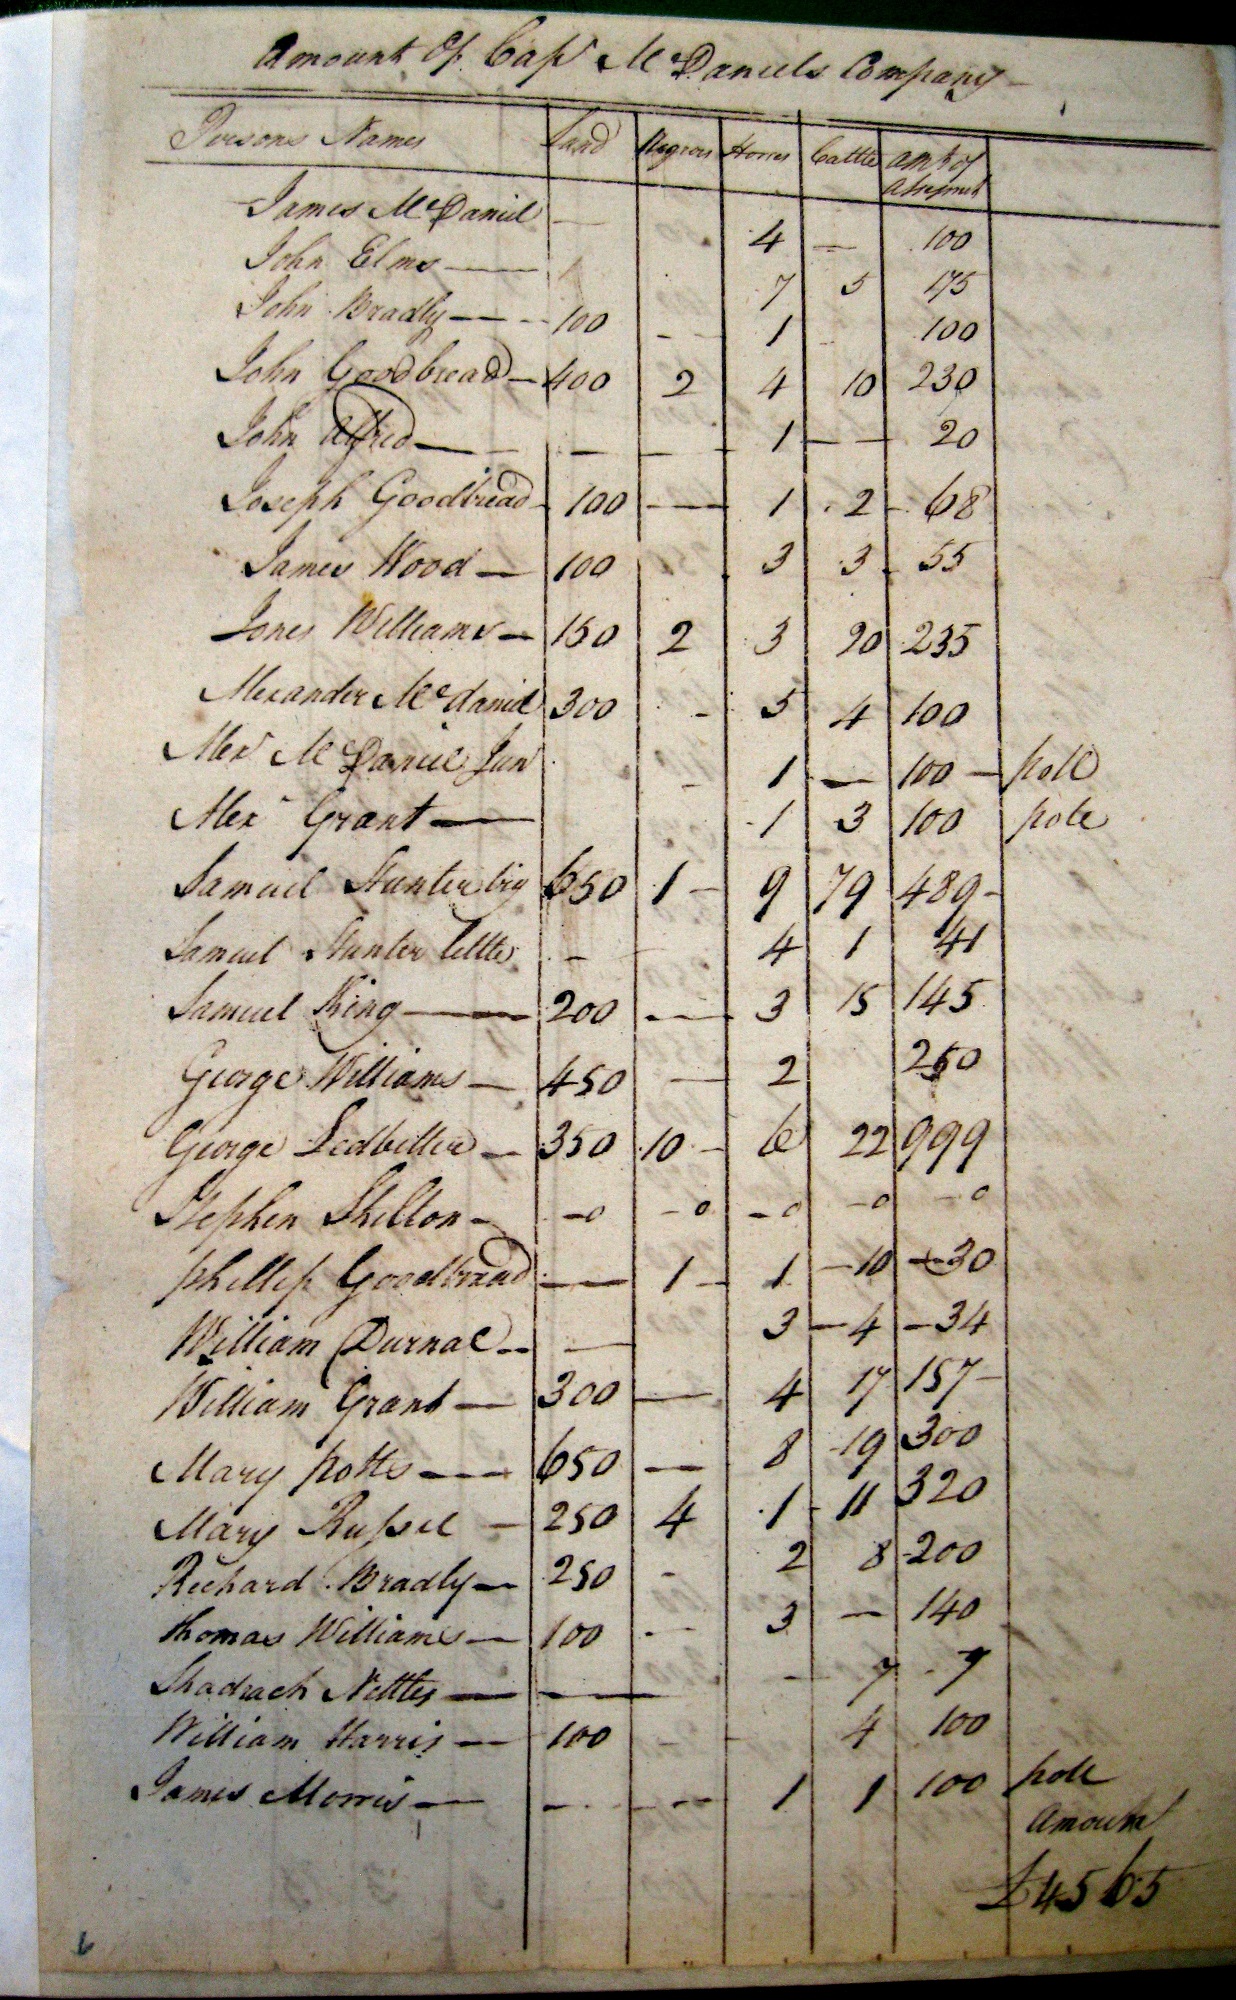 Amount Of Capt McDaniels Company
Persons Names Land Negroes Horses Cattle Amt of Assesment
James McDaniel — 4 — 100
John Elms — 7 5 175
John Bradly — 100 — 1 100
John Goodbread — 400 2 4 10 230
John Alfred — — — 1 — 20
Joseph Goodbread 100 — 1 2 68
James Wood — 100 3 3 55
Jones Williams — 150 2 3 20 235
Alexander Mcdaniel 300 - 5 4 100
Alexr McDaniel Jun - 1 — 100 — poll
Alexr Grant — 1 3 100 pole
Samuel Hunter big 650 1 — 9 79 489 -
Samuel Hunter little - 4 1 41
Samuel King — 200 — 3 15 145
George Williams — 450 — 2 250
George Ledbetter — 350 10 - 6 22 999
Stephen Shelton - -0 -0 -0 -0 -0
phillip Goodbread — 1 - 1 - 10 - 30
William Durnal -- — 3 - 4 - 34
William Grant — 300 — 4 17 157 -
Mary potts — 650 — 8 19 300
Mary Russel — 250 4 1 - 11 320
Richard Bradly — 250 - 2 8 200
thomas Williams — 100 -- 3 — 140
Shadrach Nettles — — - 7 - 7
William Harris — 100 - - 4 100
James Morris — - -- 1 1 100 pole
Amount
£4565
6